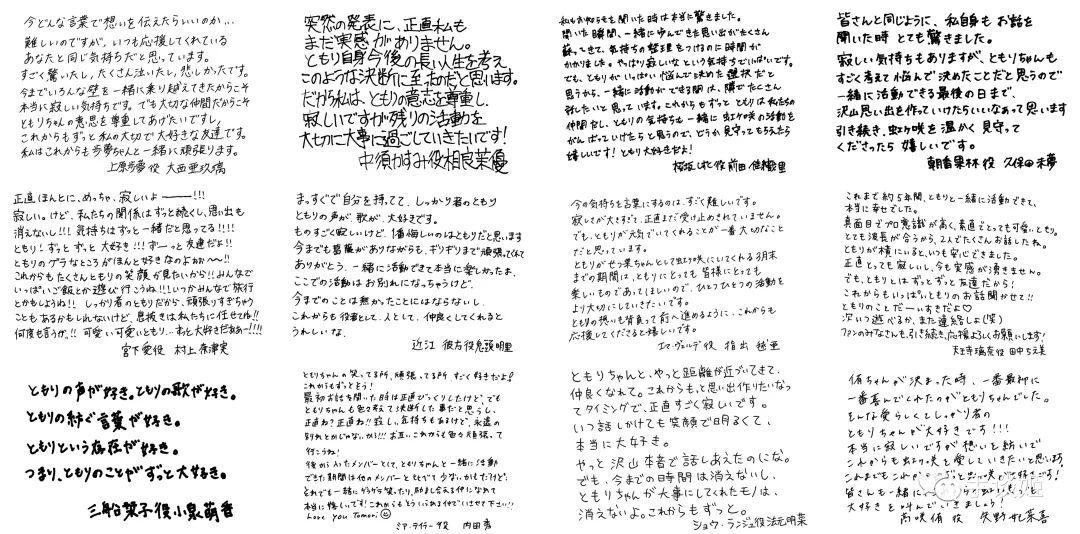 今どんな言葉で想いを伝えたらいいのか...
難しいのですが、いつも応援してくれている
あなたと同じ気持ちだと思っています。
すごく驚いたし、たくさん泣いたし、悲しかったです。
今までいろんな壁を一緒に乗り越えてきたからこそ
本当に寂しい気持ちです。でも大切な仲間だからこそ
ともりちゃんの意思を尊重してあげたいですし、
これからもずっと私の大切で大好きな友達です。
私はこれからも歩夢ちゃんと一緒に頑張ります。
上原歩夢役 大西亜玖璃
突然の発表に、正直私も
まだ実感がありません。
ともり自身今後の長い人生を考え
このような決断に至ったのだと思います。
だから私は、ともりの意志を尊重し、
寂しいですが残りの活動を
大切に大事に過ごしていきたいです!
中須かすみ役相良茉優
私もお知らせを聞いた時は本当に驚きました。
聞いた瞬間、一緒に歩んできた思い出がたくさん
蘇ってきて、気持ちの整理をつけるのに時間が
かかりました。やっぱり寂しいなという気持ちでいっぱいです。
でも、ともりがいっぱい悩んで決めた選択だと
思うから、一緒に活動ができる間は、隣でたくさん
対したいと思っています。これからもずっとともりは私たちの
仲間だし、ともりの気持ちも一緒に虹ヶ咲の活動を
がんばっていけたらと思うので、どうか見守ってもらえたら
嬉しいです!ともり大好きだよ!
桜坂しずく役 前田佳織里
皆さんと同じように、私自身もお話を
聞いた時とても驚きました。
寂しい気持ちもありますが、ともりちゃんも
すごく考えて悩んで決めたことだと思うので
一緒に活動できる最後の日まで、
沢山思い出を作っていけたらいいなぁって思います
引き続き、虹ヶ咲を温かく見守って
くださったら嬉しいです。
朝香果林役 久保田未夢
正直ほんとに、めっちゃ、寂しいよ———!!!
寂しい。けど、私たちの関係はずっと続くし、思い出も
消えないし!!! 気持ちはずっと一緒だと思ってる!!!!
ともり!ずっとずっと大好き!!!ずーっと友達だよ!!
ともりのゲラなところがほんと好きなのよぉぉ〜!!
これからもたくさんともりの笑顔が見たいから!!みんなで
いっぱいご飯とか遊び行こうね!!!いつかみんなで旅行
とかもしようね!! しっかり者のともりだから、頑張りすぎちゃう
こともあるかもしれないけど、息抜きは私たちに任せてね!!
何度も言うが!! 可愛い可愛いともり…ずっと大好きだぁぁー!!!!
宮下愛役 村上奈津実
まっすぐで自分を持ってて、しっかり者のともり
ともりの声が、歌が、大好きです。
ものすごく寂しいけど、1番悔しいのはともりだと思います
今までも葛藤がありながらも、ギリギリまで頑張ってくれて
ありがとう。一緒に活動できて本当に楽しかったよ。
ここでの活動はお別れになっちゃうけど、
今までのことは無かったことにはならないし、
これからも役者として、人として、仲良くしてくれると
うれしいな。
近江彼方役鬼頭明里
今の気持ちを言葉にするのは、すごく難しいです。
寂しさが大きすぎて、正直まだ受け止めきれていません。
でも、ともりが元気でいてくれることが一番大切なこと
だと思っています。
ともりがせつ菜ちゃんとして虹ヶ咲にいてくれる3月末
までの期間は、ともりにとっても皆様にとっても
楽しいものであってほしいので、ひとつひとつの活動を
より大切にしていきたいです。
ともりの想いも背負って前へ進めるように、これからも
応援してくださると嬉しいです。
エマ・ヴェルデ役 指出毬亜
これまで約5年間、ともりと一緒に活動できて、
本当に幸せでした。
真面目でプロ意識が高く、素直でとっても可愛いともり。
とても波長が合うから、2人でたくさんお話したね。
ともりが横にいると、いつも安心できました。
正直とっても寂しいし、今も実感が湧きません。
でも、ともりとはずっとずっと友達だから!
これからもいっぱい、ともりのお話聞かせて!!
ともりのことだーいすきだよ♡
次いつ遊べるか、また連絡しよ(笑)
ファンのみなさんも、引き続き、応援よろしくお願いします!
天王寺璃奈役 田中ちえ美
ともりの声が好き。ともりの歌が好き。
ともりの紡ぐ言葉が好き。
ともりという存在が好き。
つまり、ともりのことがずっと大好き。
三船栞子役小泉萌香
ともりちゃんの笑ってる所、頑張ってる所 すごく好きだよ!
これからもずっとそう!
最初お話を聞いた時は正直びっくりしたけど、でも
ともりちゃんも色々考えて決断した事だと思うし、
正直ね?正直ね?!寂しい気持ちもあるけど、永遠の
別れとかじゃないから!!!お互いこれからも色々頑張って
行こうね!
後から入ったメンバーとして、ともりちゃんと一緒に活動
できた期間は他のメンバーとくらべて少ないかもだけど、
それでも一緒にゲラゲラ笑ったり、励まし合える仲になれて
本当に嬉しいです!これからもどうぞよろしくさせて下さい!!
Love you Tomori ☺
ミア・テイラー役 内田秀
ともりちゃんと、やっと距離が近づいてきて、
仲良くなれて。これからもっと思い出作りたいなっ
てタイミングで、正直すごく寂しいです。
いつ話しかけても笑顔で明るくて、
本当に大好き。
やっと沢山本音で話しあえたのにな。
でも、今までの時間は消えないし、
ともりちゃんが大事にしてくれたモノは、
消えないよ。これからもずっと。
ショウ・ランジュ役法元明菜
侑ちゃんが決まった時、一番最初に
一番喜んでくれたのがともりちゃんでした。
そんな愛らしくてしっかり者の
ともりちゃんが大好きです!!!
本当に寂しいですが想いを紡いで
これからも虹ヶ咲を愛していきたいと思います。
これまでもこれからもずっと
皆さんも一緒に
大好きを叫んでいきましょう!
高咲侑役 矢野妃菜喜